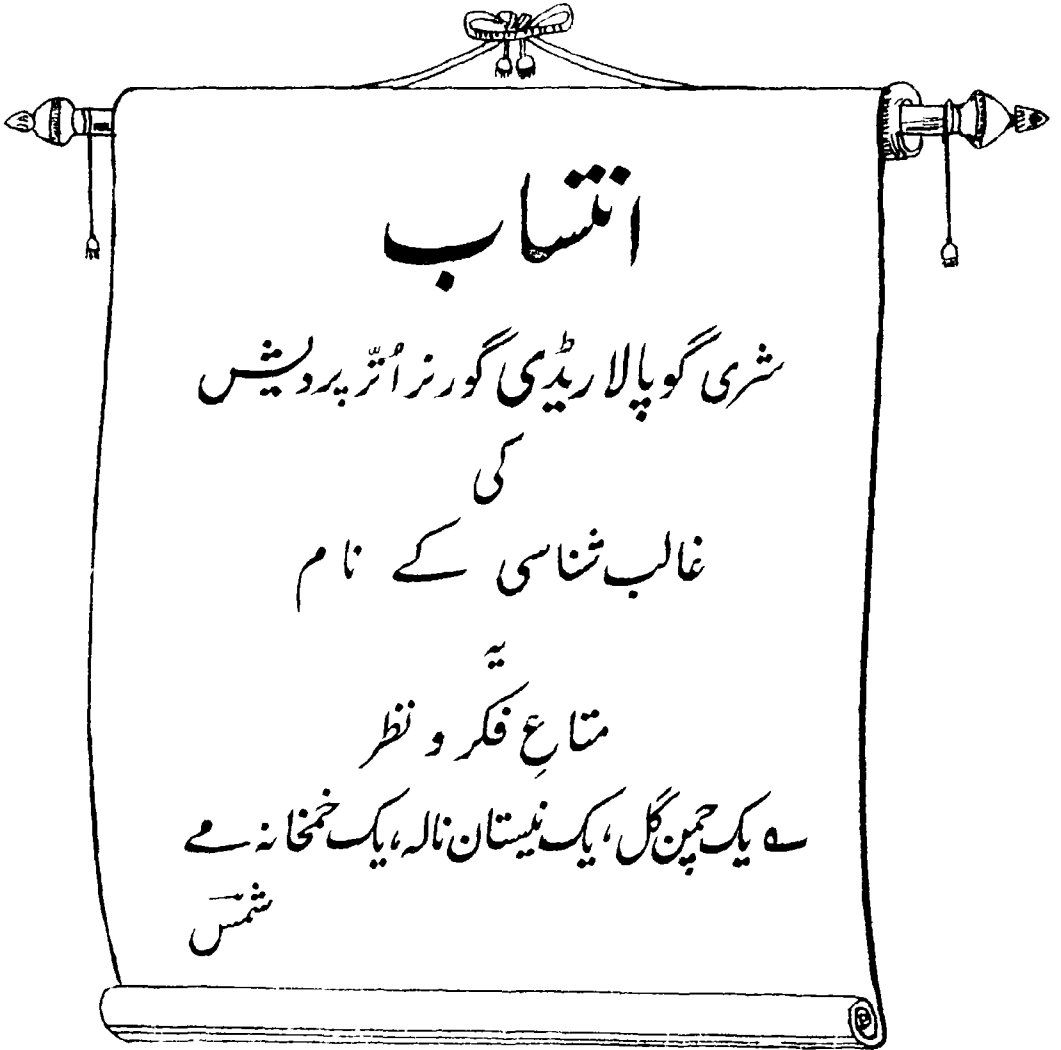 انتساب
شری گوپالا ریڈی گورنر اُترّ پردیش
کی
غالب شناسی کے نام
یہ
متاعِ فکر و نظر
؎ یک چمن گل، یک نیستان نالہ، یک خمخانہ مے
شمسؔ